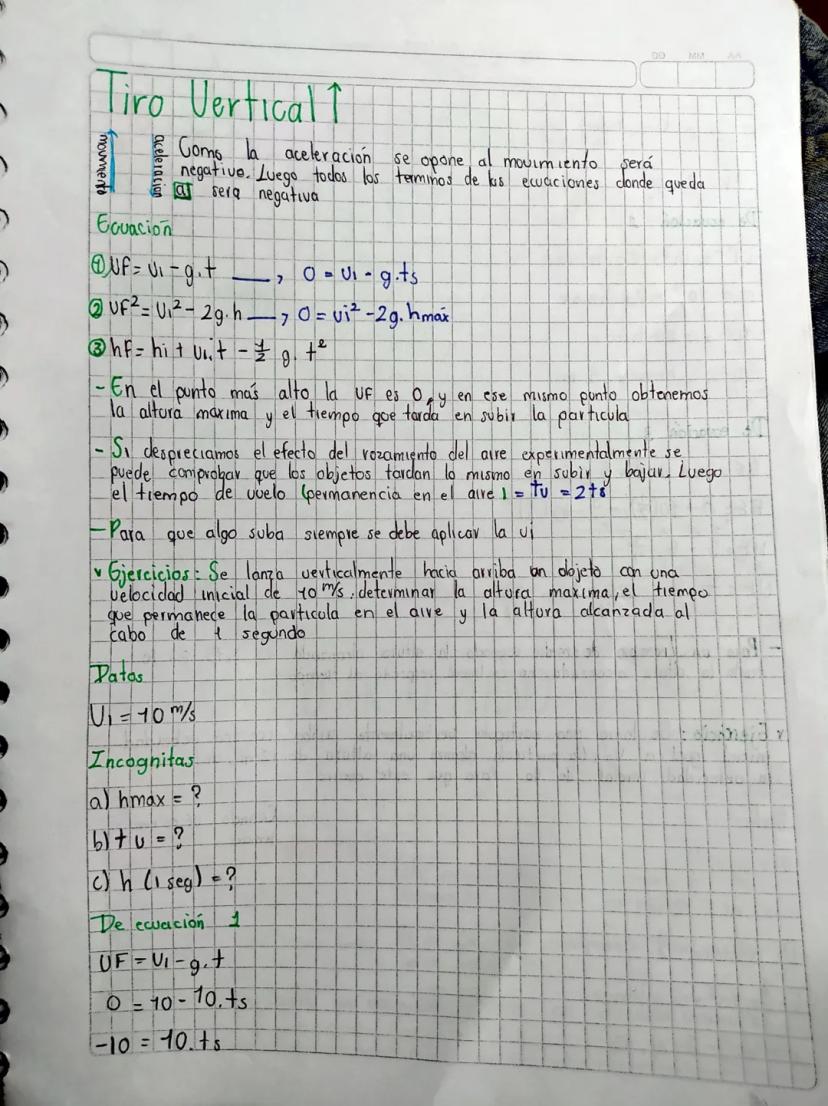 DD MM AA
Tiro Vertical ↑
movimiento
aceleración
Como la aceleración se opone al movimiento será
negativo. Luego todos los terminos de las ecuaciones donde queda
a sera negativa
Ecuación
① VF = Vi - g.t →, 0 = Vi - g.ts
② VF² = Vi² - 2g.h → 0 = vi² - 2g.hmáx
③ hF = hi + vi.t - 1/2 g. t²
- En el punto más alto la VF es 0, y en ese mismo punto obtenemos
la altura maxima y el tiempo que tarda en subir la particula
- Si despreciamos el efecto del rozamiento del aire experimentalmente se
puede comprobar que los objetos tardan lo mismo en subir y bajar. Luego
el tiempo de vuelo (permanencia en el aire) = tv = 2ts
- Para que algo suba siempre se debe aplicar la vi
v Ejercicios: Se lanza verticalmente hacia arriba un objeto con una
velocidad inicial de 10 m/s, determinar la altura maxima, el tiempo
que permanece la particula en el aire y la altura alcanzada al
cabo de 1 segundo
Datos
Vi = 10 m/s
Incognitas
a) hmax = ?
b) tv = ?
c) h (1 seg) = ?
De ecuación 1
VF = Vi - g.t
0 = 10 - 10.ts
-10 = 10.ts